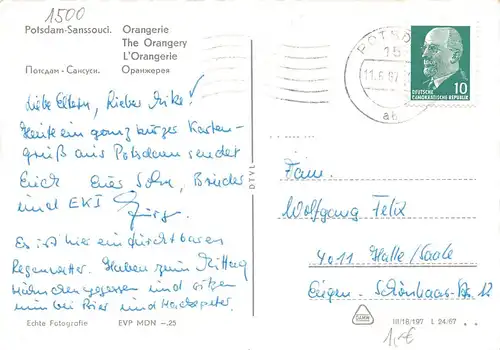 1500
Potsdam-Sanssouci. Orangerie
The Orangery
L'Orangerie
Потсдам - Сансуси. Оранжерея
Liebe Eltern, lieber Mike!
Heute ein ganz kurzer Karten-
gruß aus Potsdam sendet
Euch Euer Sohn, Bruder
und EKI
Es ist hier ein furchtbares
Regenwetter. Haben zum Mittag
Hähnchen gegessen und sitzen
nun bei Bier und
Echte Fotografie EVP MDN -.25
DTVL
POTSD
15
11.6.67
ab
10
DEUTSCHE
DEMOKRATISCHE REPUBLIK
Fam.
Wolfgang Felix
4011 Halle/Saale
Eugen-Schönhaar-Str. 12
III/18/197 L 24/67
1,-€